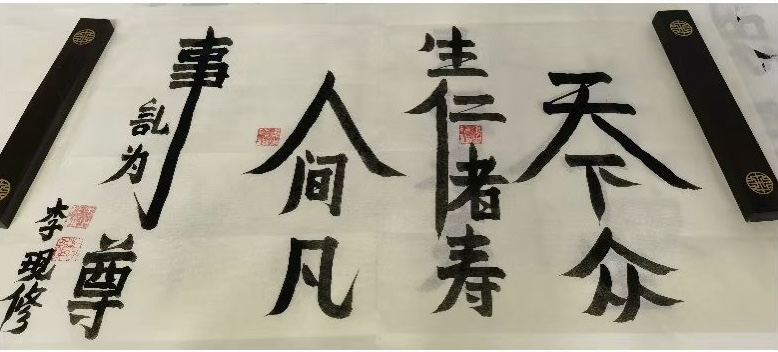 天下众
生仁者寿
人间凡
事
乱为尊
李现修